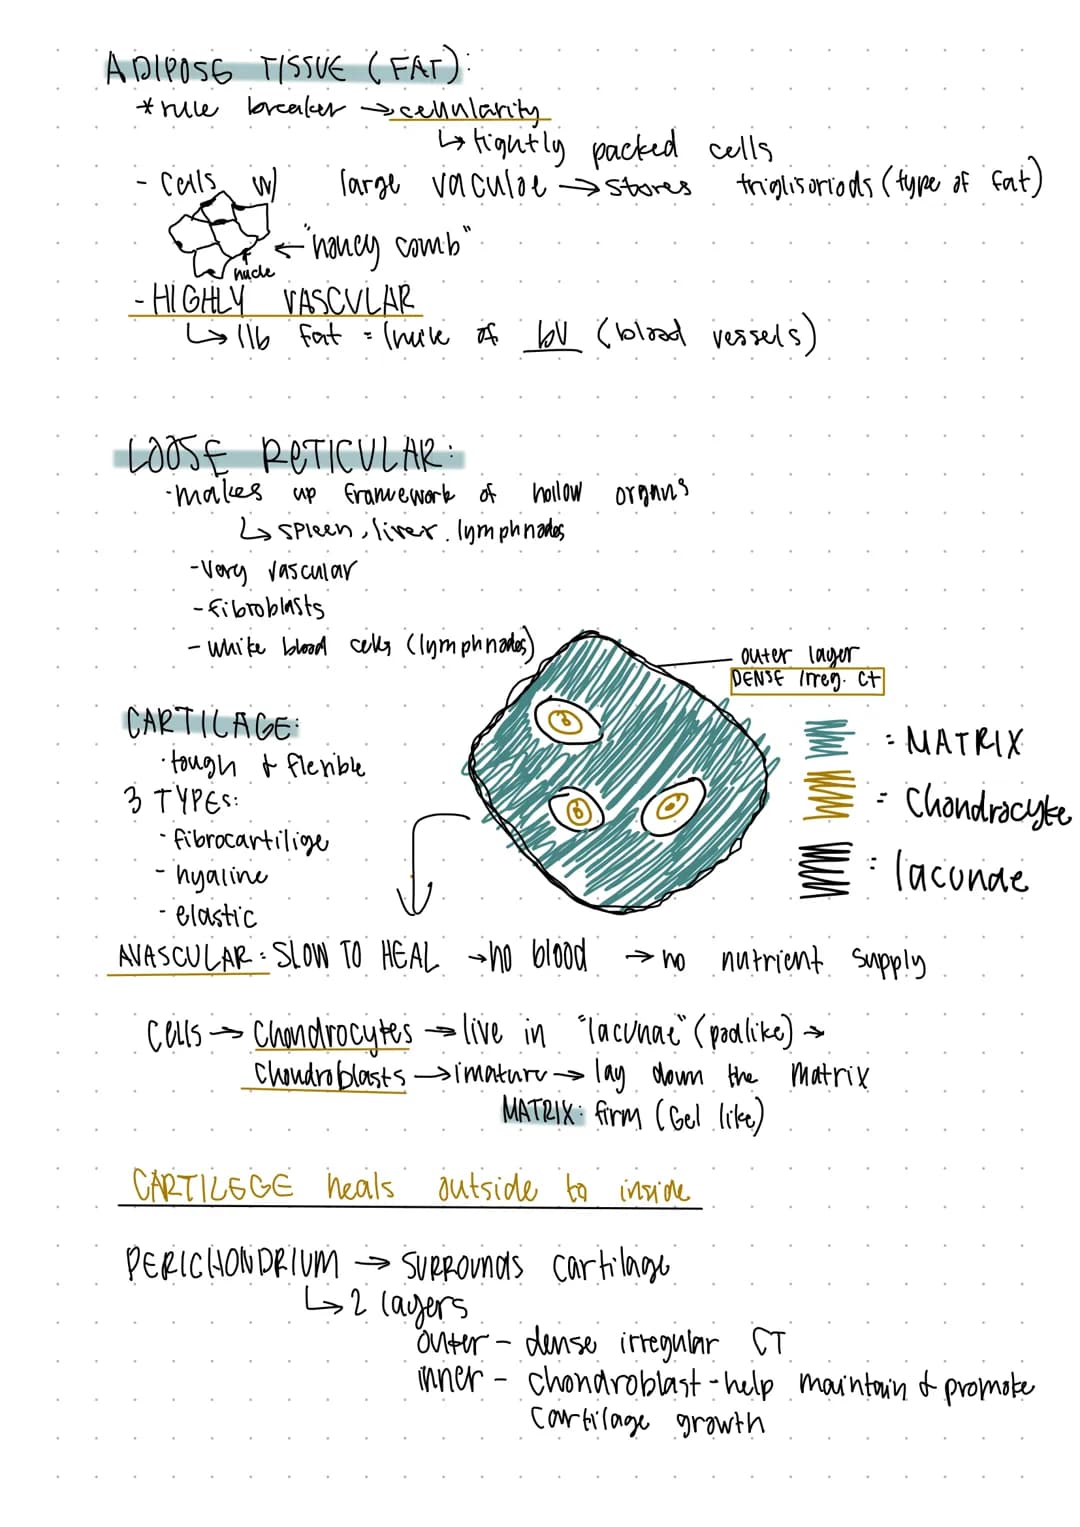 ADIPOSE TISSUE (FAT):
* rule breaker → cellularity
↳ tightly packed cells
- Cells w/ large vaculoe → stores triglisoriods (type of fat)
← "honey comb"
nucle
- HIGHLY VASCULAR
↳ 1lb fat = 1 mile of bV (blood vessels)
LOOSE RETICULAR:
· makes up framework of hollow organs
↳ spleen, liver, lymph nodes
- Very vascular
- fibroblasts
- white blood cells (lymph nodes)
outer layer
DENSE Irreg. CT
CARTILAGE:
· tough & flexible
3 TYPES:
- fibrocartilige
- hyaline
- elastic
= MATRIX
= Chondrocyte
= lacunae
AVASCULAR: SLOW TO HEAL → no blood → no nutrient supply
Cells → Chondrocytes → live in "lacunae" (podlike) →
Chondroblasts → imature → lay down the matrix
MATRIX: firm (Gel like)
CARTILEGE heals outside to inside
PERICHONDRIUM → SURROUNDS cartilage
↳ 2 layers
outer - dense irregular CT
inner - chondroblast - help maintain & promote
cartilage growth